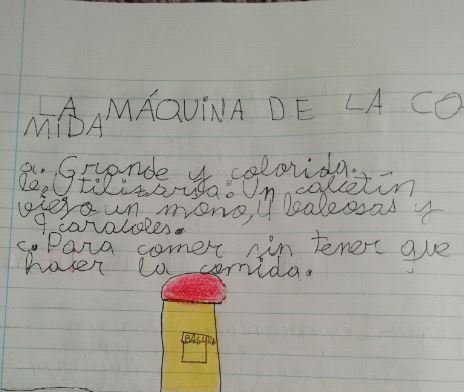 LA MÁQUINA DE LA CO
MIDA
a. Grande y colorida.
b. Utilizaría: Un calcetín
viejo un mono, 4 babosas y
9 caracoles.
c. Para comer sin tener que
hacer la comida.
BASURA